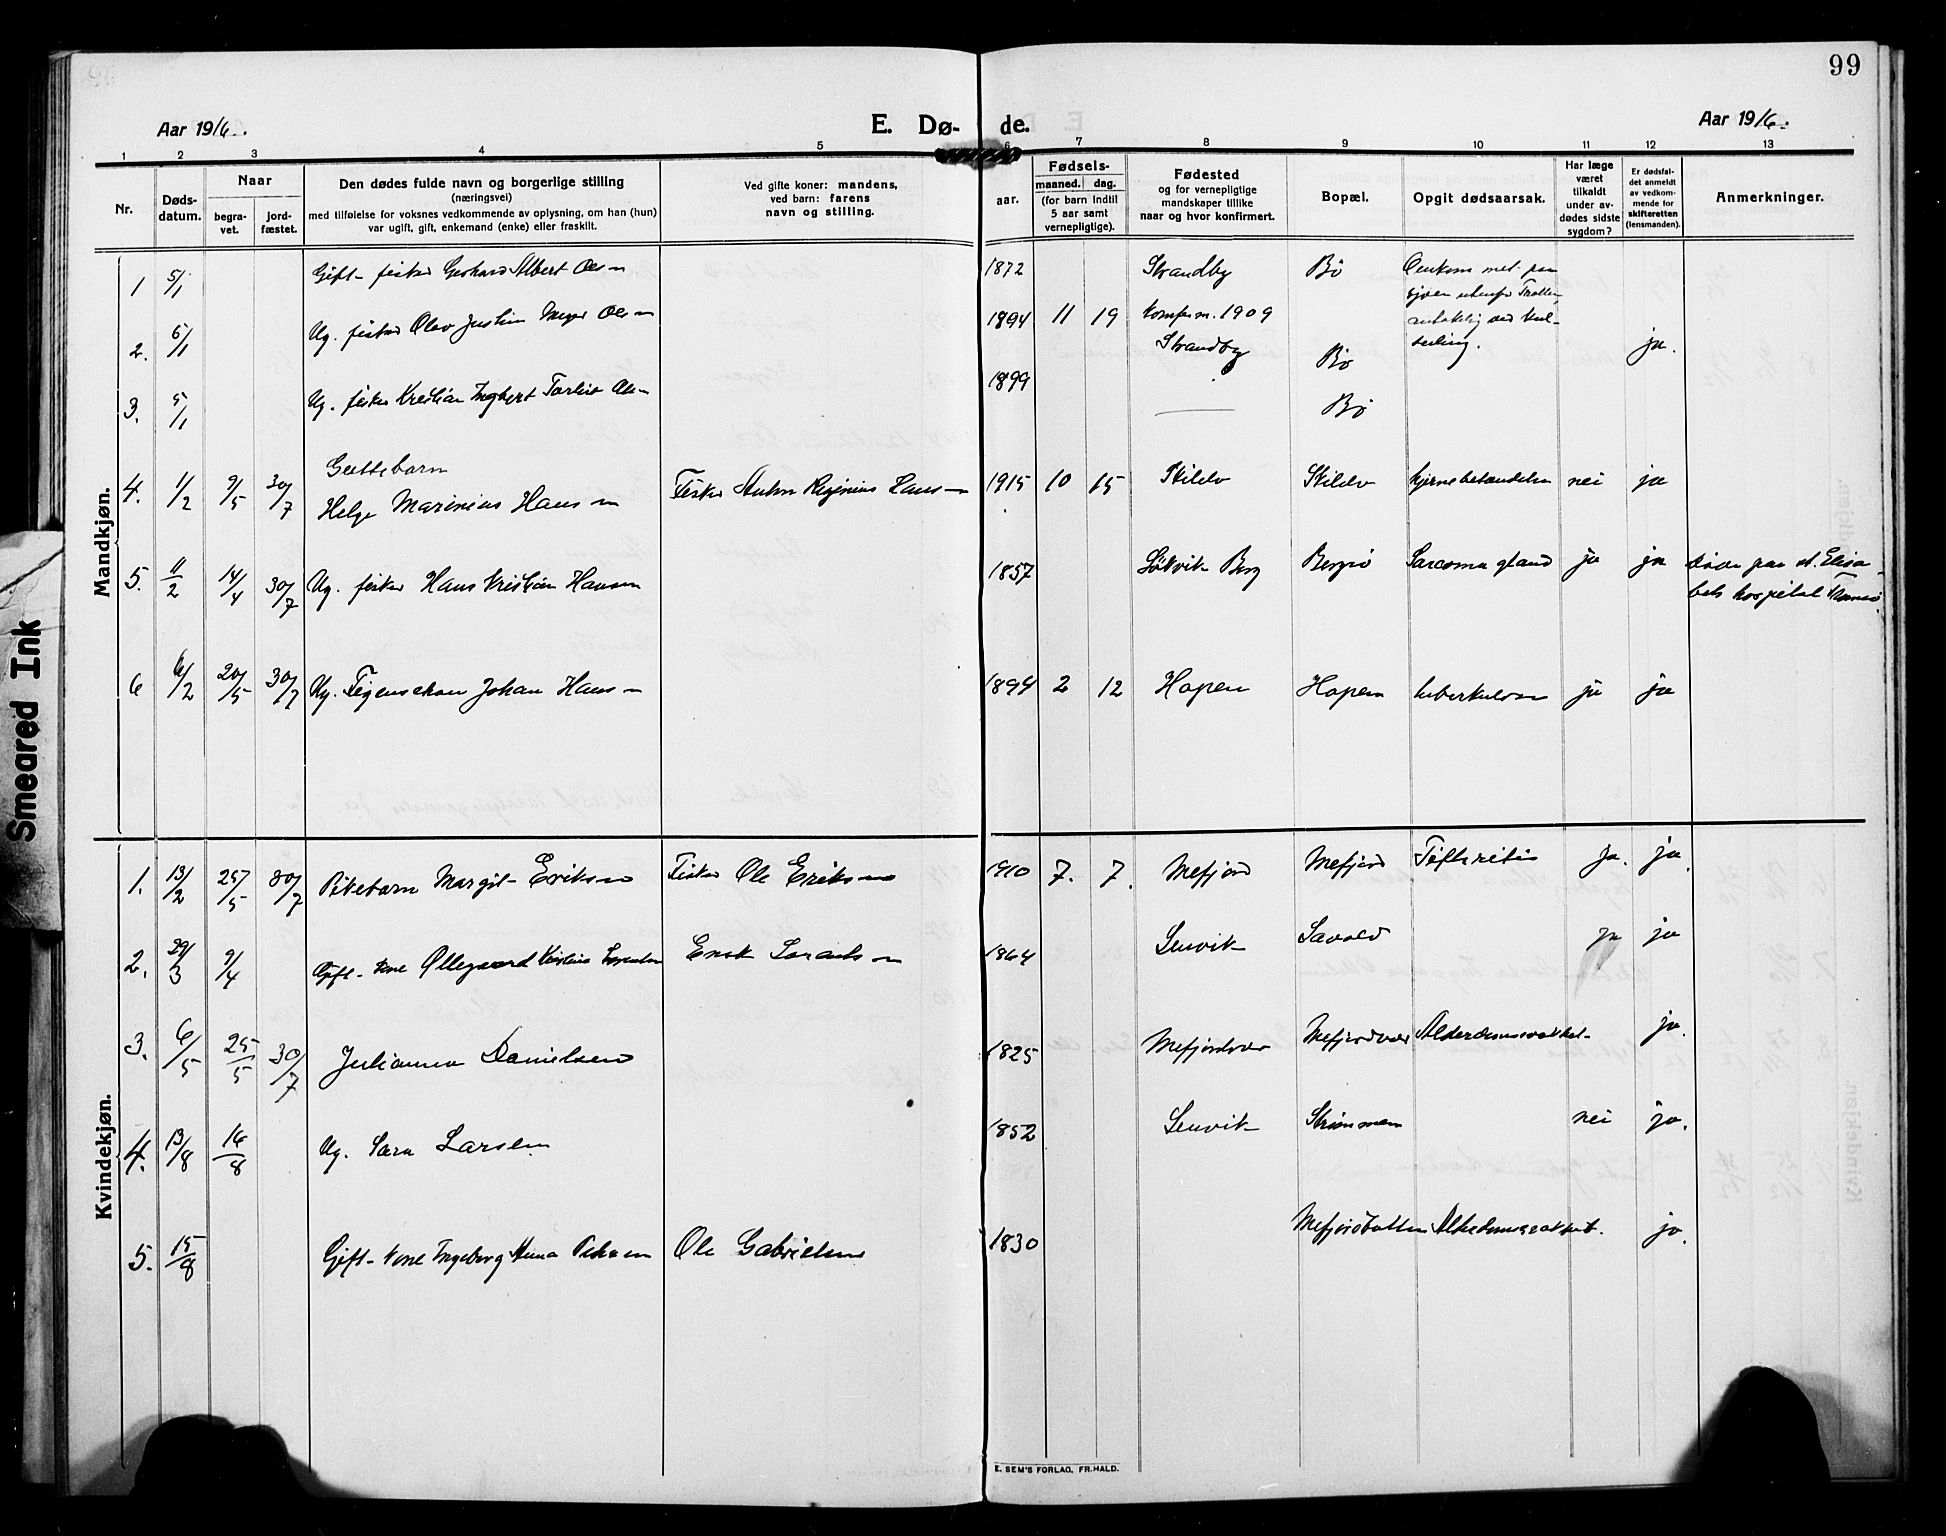 99
Aar 1916.
E. Dø- de.
Aar 1916.
1 2 3 4 5 6 7 8 9 10 11 12 13
Nr.
Døds-
datum.
Naar
begra-
vet.
jord-
fæstet.
Den dødes fulde navn og borgerlige stilling
(næringsvei)
med tilføielse for voksnes vedkommende av oplysning, om han (hun)
var ugift, gift, enkemand (enke) eller fraskilt.
Ved gifte koner: mandens,
ved barn: farens
navn og stilling.
Fødsels-
aar.
maaned. dag.
(for barn indtil
5 aar samt
vernepligtige).
Fødested
og for vernepligtige
mandskaper tillike
naar og hvor konfirmert.
Bopæl.
Opgit dødsaarsak.
Har læge
været
tilkaldt
under av-
dødes sidste
sygdom?
Er dødsfal-
det anmeldt
av vedkom-
mende for
skifteretten
(lensmanden).
Anmerkninger.
Mandkjøn.
1 5/1 Gift fisker Gerhard Albert Olsen 1872 Strandby Bø
2. 5/1 Ug. fisker Olav Justin Meyer Olsen 1894 11 19 Konferm. 1909 Strandby Bø ja.
3. 5/1 Ug. fisker Kristian Ingbert Torleif Olsen 1899 Bø
4. 1/2 9/5 30/7 Guttebarn
Helge Marinius Hansen Fisker Anton Reginius Hansen 1915 10 15 Skilev Skilev hjernebetændelse nei ja
5. 11/2 14/4 30/7 Ug. fisker Hans Kristian Hansen 1857 Bergsø Sarcoma gland ja ja døde paa st. Elisa-
bets hospital Tromsø.
6 6/2 20/5 30/7 Ug. Johan Hansen 1894 2 12 Hopen Hopen tuberkulose ja ja
Kvindekjøn.
1. 13/2 25/5 30/7 Pikebarn Margit Eriksen Fisker Ole Eriksen 1910 7. 7. Mefjord Mefjord Difteritis ja. ja.
2. 29/3 9/4 Gift Kone Øllegaard Kristine Lorentsen Enok Lorentsen 1864 Lenvik ja ja
3. 6/5 25/5 30/7 Julianna Danielsen 1825 Mefjordvær Mefjordvær Alderdomssvakhet ja.
4. 13/8 16/8 Ug. Sara Larsen 1852 Lenvik Strømmen nei ja.
5. 15/8 Gift Kone Ingeborg Anna Ole Gabrielsen 1830 Mefjordbotten Alderdomssvakhet. ja.
E. SEM'S FORLAG, FR.HALD.
Smeared Ink